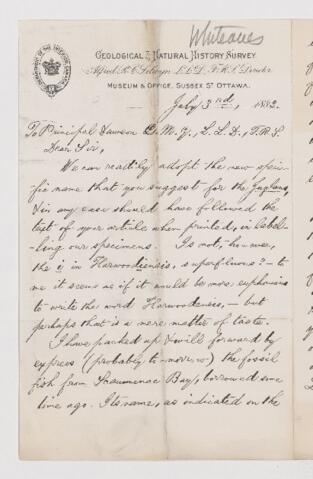 Whiteaves
GEOLOGICAL & NATURAL HISTORY SURVEY
Alfred R. C. Selwyn L.L.D., F.R.S. Director
MUSEUM & OFFICE, SUSSEX ST OTTAWA.
July 3rd, 1882.
To Principal Dawson C.M.G., L.L.D., F.R.S.
Dear Sir,
We can readily adopt the new speci-
fic name that you suggest for the Juglans,
& in any case should have followed the
text of your article when printed, in label-
ling our specimens. Is not, however,
the i in Harwoodiensis, superfluous? – to
me it seems as if it would be more euphonious
to write the word Harwoodensis, – but
perhaps that is a mere matter of taste.
I have packed up & will forward by
express (probably to-morrow) the fossil
fish from Scaumenac Bay, borrowed some
time ago. Its name, as indicated on the